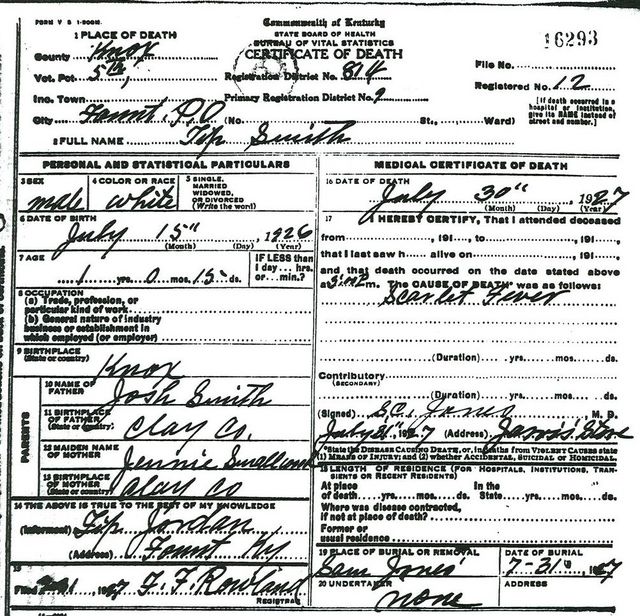 FORM V S 1-500M.
Commonwealth of Kentucky
STATE BOARD OF HEALTH
BUREAU OF VITAL STATISTICS
CERTIFICATE OF DEATH
16293
1 PLACE OF DEATH
County Knox
Vot. Pct 5th,
Inc. Town
City Fount. P.O (No. St., Ward)
Registration District No. 814
Primary Registration District No. 9
File No.
Registered No. 12
[If death occurred in a hospital or institution, give its NAME instead of street and number.]
2 FULL NAME Tip Smith
PERSONAL AND STATISTICAL PARTICULARS
3 SEX male
4 COLOR OR RACE white
5 SINGLE, MARRIED WIDOWED, OR DIVORCED (Write the word)
6 DATE OF BIRTH
July 15", 1926
(Month) (Day) (Year)
7 AGE
1 yrs. 0 mos. 15 ds.
IF LESS than 1 day... hrs. or... min.?
8 OCCUPATION
(a) Trade, profession, or particular kind of work
(b) General nature of industry business or establishment in which employed (or employer)
9 BIRTHPLACE (State or country) Knox
PARENTS
10 NAME OF FATHER Josh Smith
11 BIRTHPLACE OF FATHER (State or country) Clay Co.
12 MAIDEN NAME OF MOTHER Jennie
13 BIRTHPLACE OF MOTHER (State or country) Clay Co
14 THE ABOVE IS TRUE TO THE BEST OF MY KNOWLEDGE
(Informant) Tip Jordan
(Address) Fount Ky
15
Filed 1927 F. F. Rowland
REGISTRAR
MEDICAL CERTIFICATE OF DEATH
16 DATE OF DEATH
July 30", 1927
(Month) (Day) (Year)
17 I HEREBY CERTIFY, That I attended deceased
from, 191, to, 191,
that I last saw h alive on, 191,
and that death occurred on the date stated above
at m. The CAUSE OF DEATH was as follows:
Scarlet Fever
(Duration) yrs. mos. ds.
Contributory
(SECONDARY)
(Duration) yrs. mos. ds.
(Signed) S.C. Jones, M. D.
July 31" 1927 (Address) Jarvis Store
*State the DISEASE CAUSING DEATH, or, in deaths from VIOLENT CAUSES state
(1) MEANS OF INJURY; and (2) whether ACCIDENTAL, SUICIDAL or HOMICIDAL.
18 LENGTH OF RESIDENCE (FOR HOSPITALS, INSTITUTIONS, TRANSIENTS OR RECENT RESIDENTS)
At place of death yrs. mos. ds. In the State yrs. mos. ds.
Where was disease contracted, if not at place of death?
Former or usual residence
19 PLACE OF BURIAL OR REMOVAL
Sam Jones'
DATE OF BURIAL
7-31", 1927
20 UNDERTAKER
none
ADDRESS